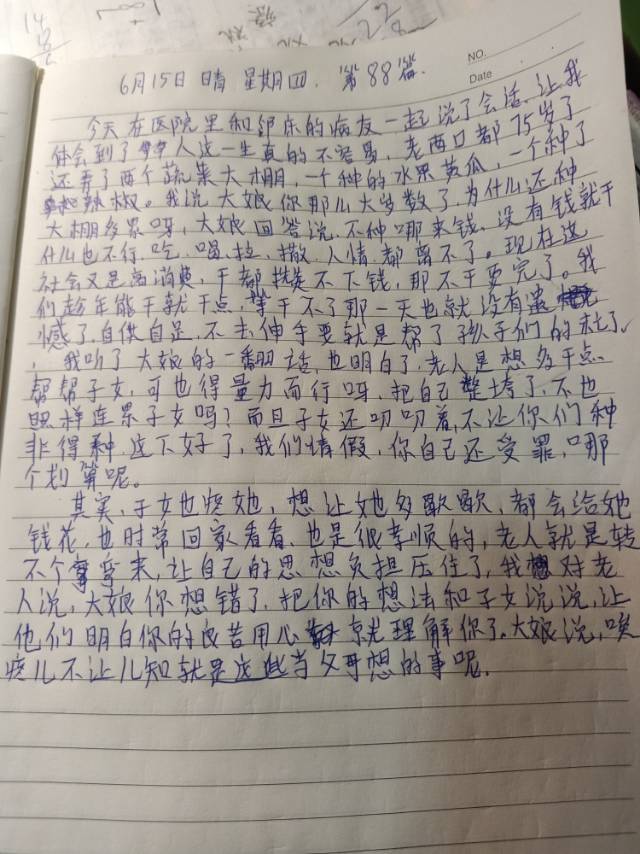 NO.
Date
6月15日 晴 星期四. 第88篇.
今天在医院里和邻床的病友一起说了会话,让我
体会到了人这一生真的不容易,老两口都75岁了
还弄了两个蔬菜大棚,一个种的水果黄瓜,一个种了
辣椒。我说大娘你那么大岁数了,为什么还种
大棚多累呀,大娘回答说,不种哪来钱,没有钱就干
什么也不行,吃、喝、拉、撒、人情都离不了。现在这
社会又是高消费,干都攒不下钱,那不干更完了。我
们趁年能干就干点,等干不了那一天也就没有遗
憾了,自供自足,不去伸手要就是帮了孩子们的忙了、
我听了大娘的一翻话,也明白了,老人是想多干点
帮帮子女,可也得量力而行呀,把自己整垮了,不也
照样连累子女吗?而且子女还叨叨着,不让你们种
非得种,这下好了,我们请假,你自己还受罪,哪
个划算呢。
其实,子女也疼她,想让她多歇歇,都会给她
钱花,也时常回家看看,也是很孝顺的,老人就是转
不个弯来,让自己的思想负担压住了,我想对老
人说,大娘你想错了,把你的想法和子女说说,让
他们明白你的良苦用心就理解你了。大娘说,唉
疼儿不让儿知就是这些当父母想的事呢.